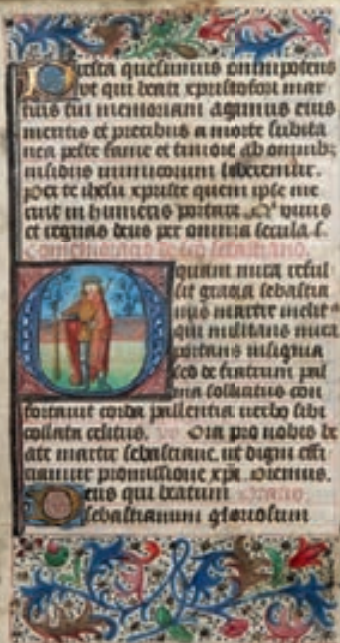 Presta quesumus omnipotens
ut qui beati xpristofori mar
tiris tui memoriam agimus eius
meritis et precibus a morte subita
nea peste fame et timore ab omnibz
insidiis inimicorum liberemur.
Per te ihesu xpriste quem ipse me
ruit in humeris portare. Qui viuis
et regnas deus per omnia secula s.
Comemoratio de sancto sebastiano.
O quam mira reful
sit gracia sebastia
nus martir inclit
qui militans mira
portans insignia
sed de fratrum pal
ma sollicitus con
fortauit corda pallentia uerbo sibi
collata celitus. Ora pro nobis be
ate martir sebastiane. ut digni effi
ciamur promissione xpi. Oremus.
Deus qui beatum Oratio.
sebastianum gloriosum